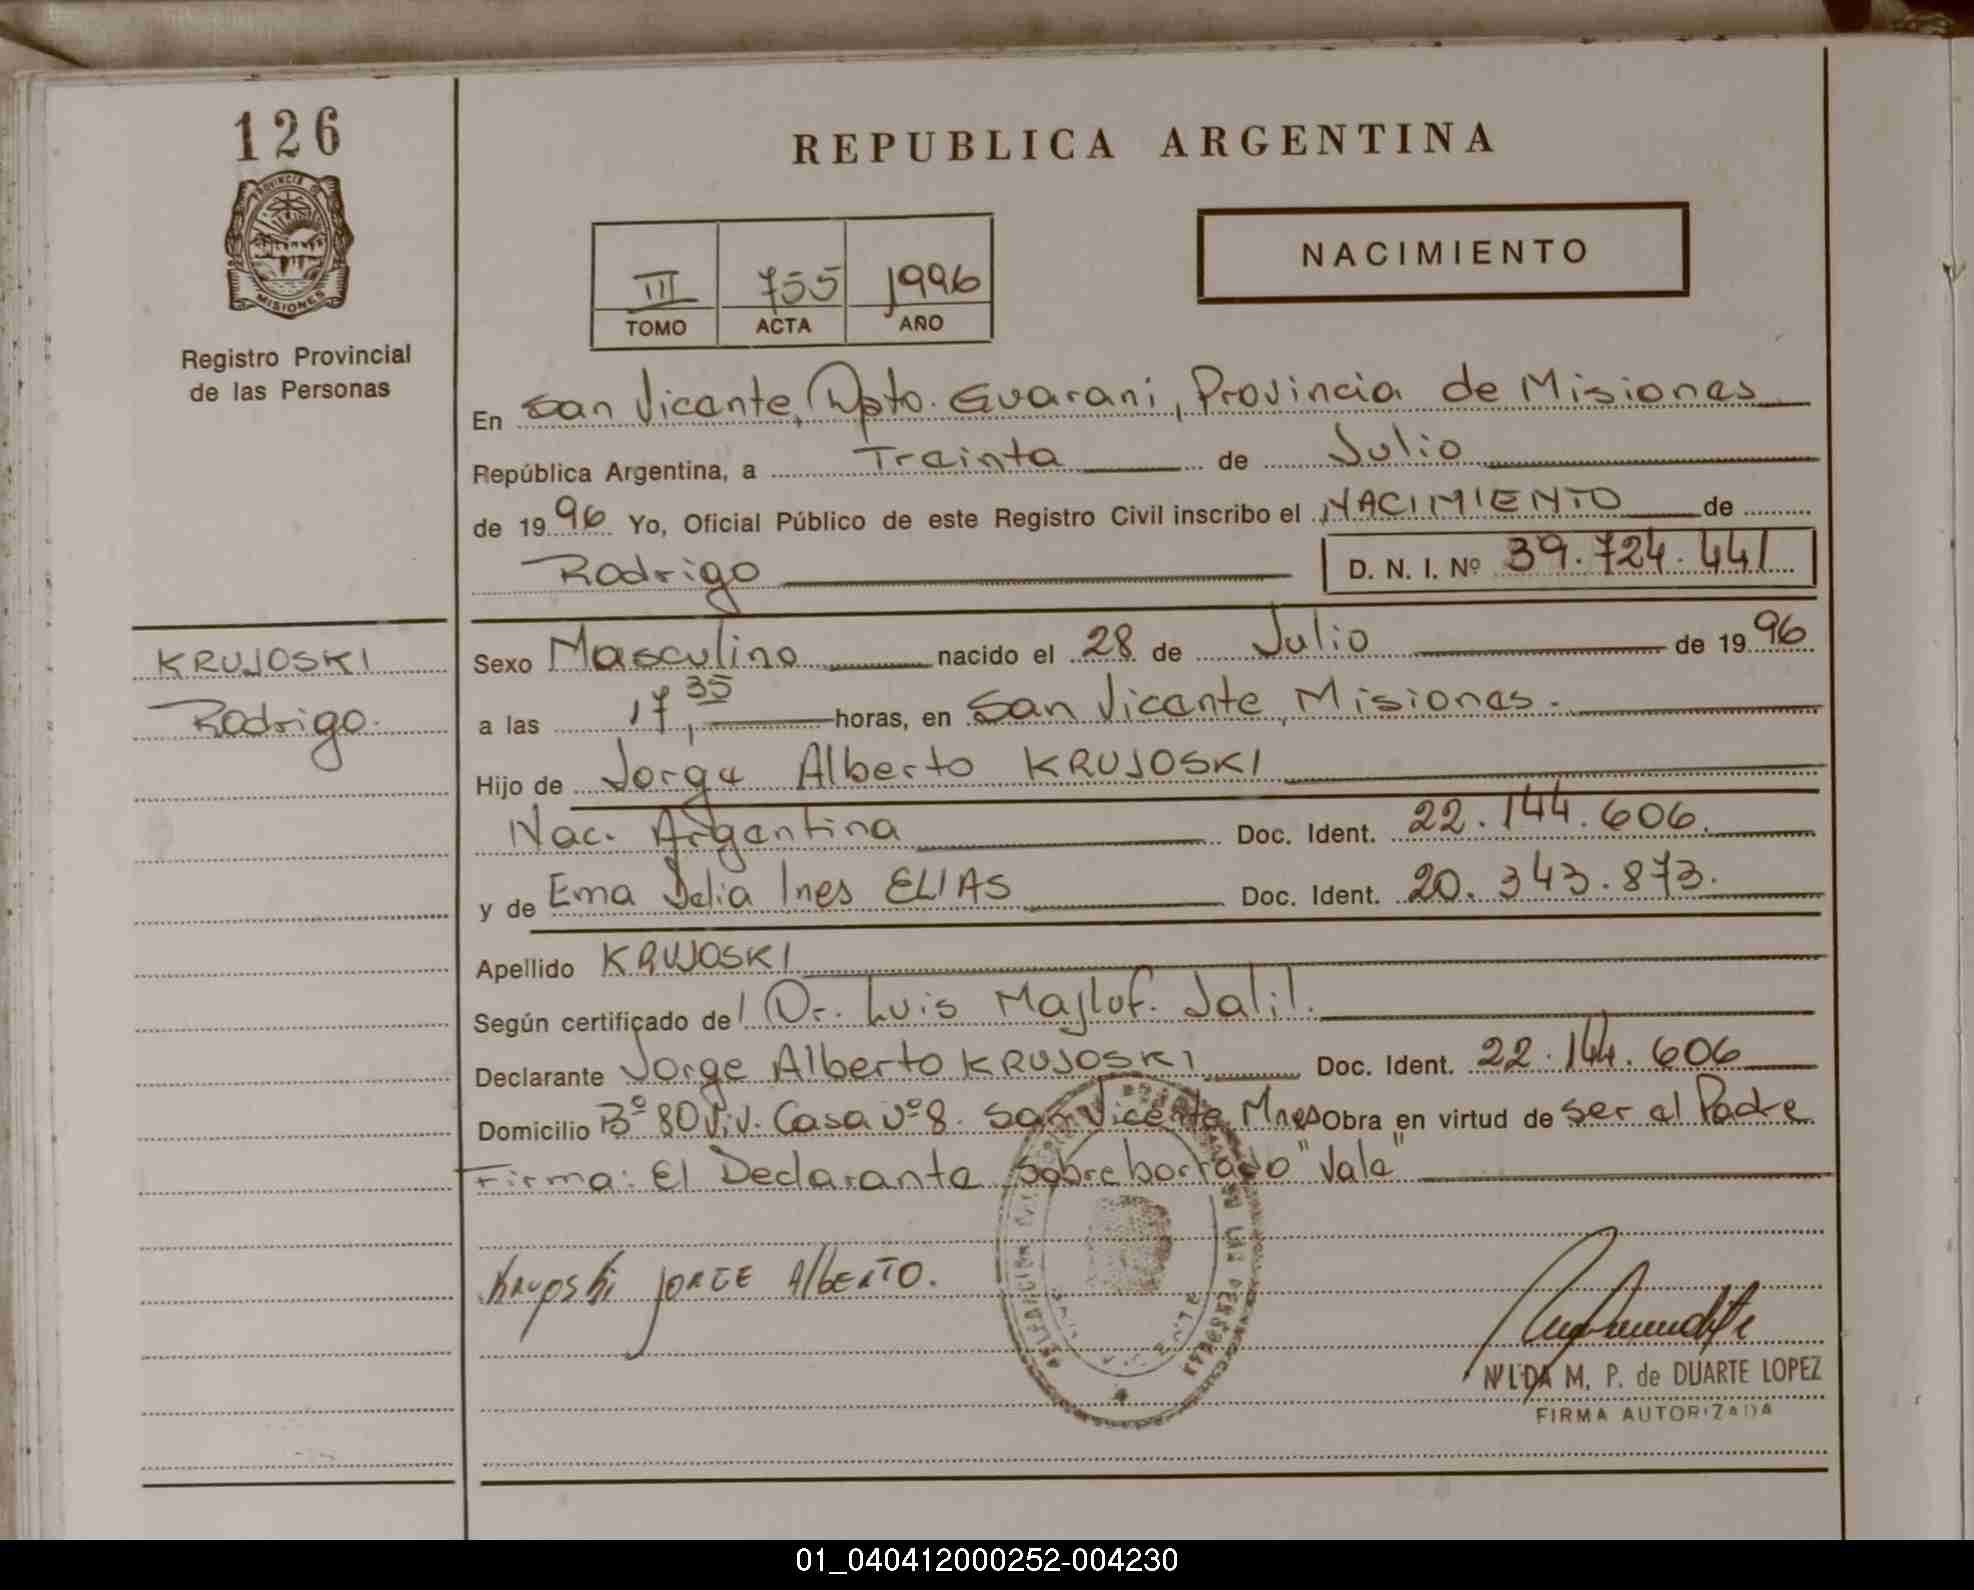 126
PROVINCIA DE
MISIONES
Registro Provincial
de las Personas
REPUBLICA ARGENTINA
NACIMIENTO
III 755 1996
TOMO ACTA AÑO
En San Vicente, Dpto. Guarani, Provincia de Misiones
República Argentina, a Treinta de Julio
de 1996 Yo, Oficial Público de este Registro Civil inscribo el NACIMIENTO de
Rodrigo D. N. I. Nº 39.724.441
KRUJOSKI
Rodrigo.
Sexo Masculino nacido el 28 de Julio de 1996
a las 17,35 horas, en San Vicente, Misiones.
Hijo de Jorge Alberto KRUJOSKI
Nac. Argentina Doc. Ident. 22.144.606.
y de Ema Delia Ines ELIAS Doc. Ident. 20.343.873.
Apellido KRUJOSKI
Según certificado del Dr. Luis Majluf. Jalil.
Declarante Jorge Alberto KRUJOSKI Doc. Ident. 22.144.606
Domicilio Bº 80 Viv. Casa Nº 8. San Vicente Mnes Obra en virtud de ser el Padre
Firma: El Declarante Sobreborrado "Vale"
KRUJOSKI JORGE AlbERTO.
NILDA M. P. de DUARTE LOPEZ
FIRMA AUTORIZADA
01_040412000252-004230